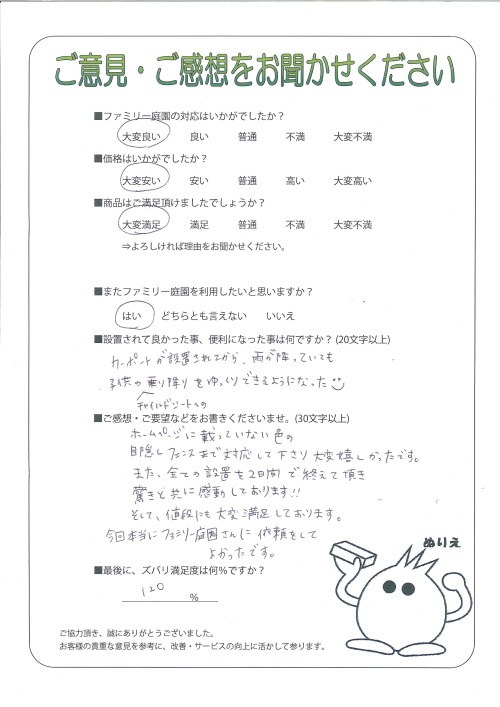 ご意見・ご感想をお聞かせください
■ファミリー庭園の対応はいかがでしたか？
大変良い 良い 普通 不満 大変不満
■価格はいかがでしたか？
大変安い 安い 普通 高い 大変高い
■商品はご満足頂けましたでしょうか？
大変満足 満足 普通 不満 大変不満
⇒よろしければ理由をお聞かせください。
■またファミリー庭園を利用したいと思いますか？
はい どちらとも言えない いいえ
■設置されて良かった事、便利になった事は何ですか？(20文字以上)
カーポートが設置されてから、雨が降っていても
子供の乗り降りをゆっくりできるようになった
チャイルドシートへの
■ご感想・ご要望などをお書きくださいませ。(30文字以上)
ホームページに載っていない色の
目隠しフェンスまで対応して下さり大変嬉しかったです。
また、全ての設置を2日間で終えて頂き
驚きと共に感動しております!!
そして、値段にも大変満足しております。
今回本当にファミリー庭園さんに依頼をして
よかったです。
ぬりえ
■最後に、ズバリ満足度は何％ですか？
120 ％
ご協力頂き、誠にありがとうございました。
お客様の貴重な意見を参考に、改善・サービスの向上に活かして参ります。